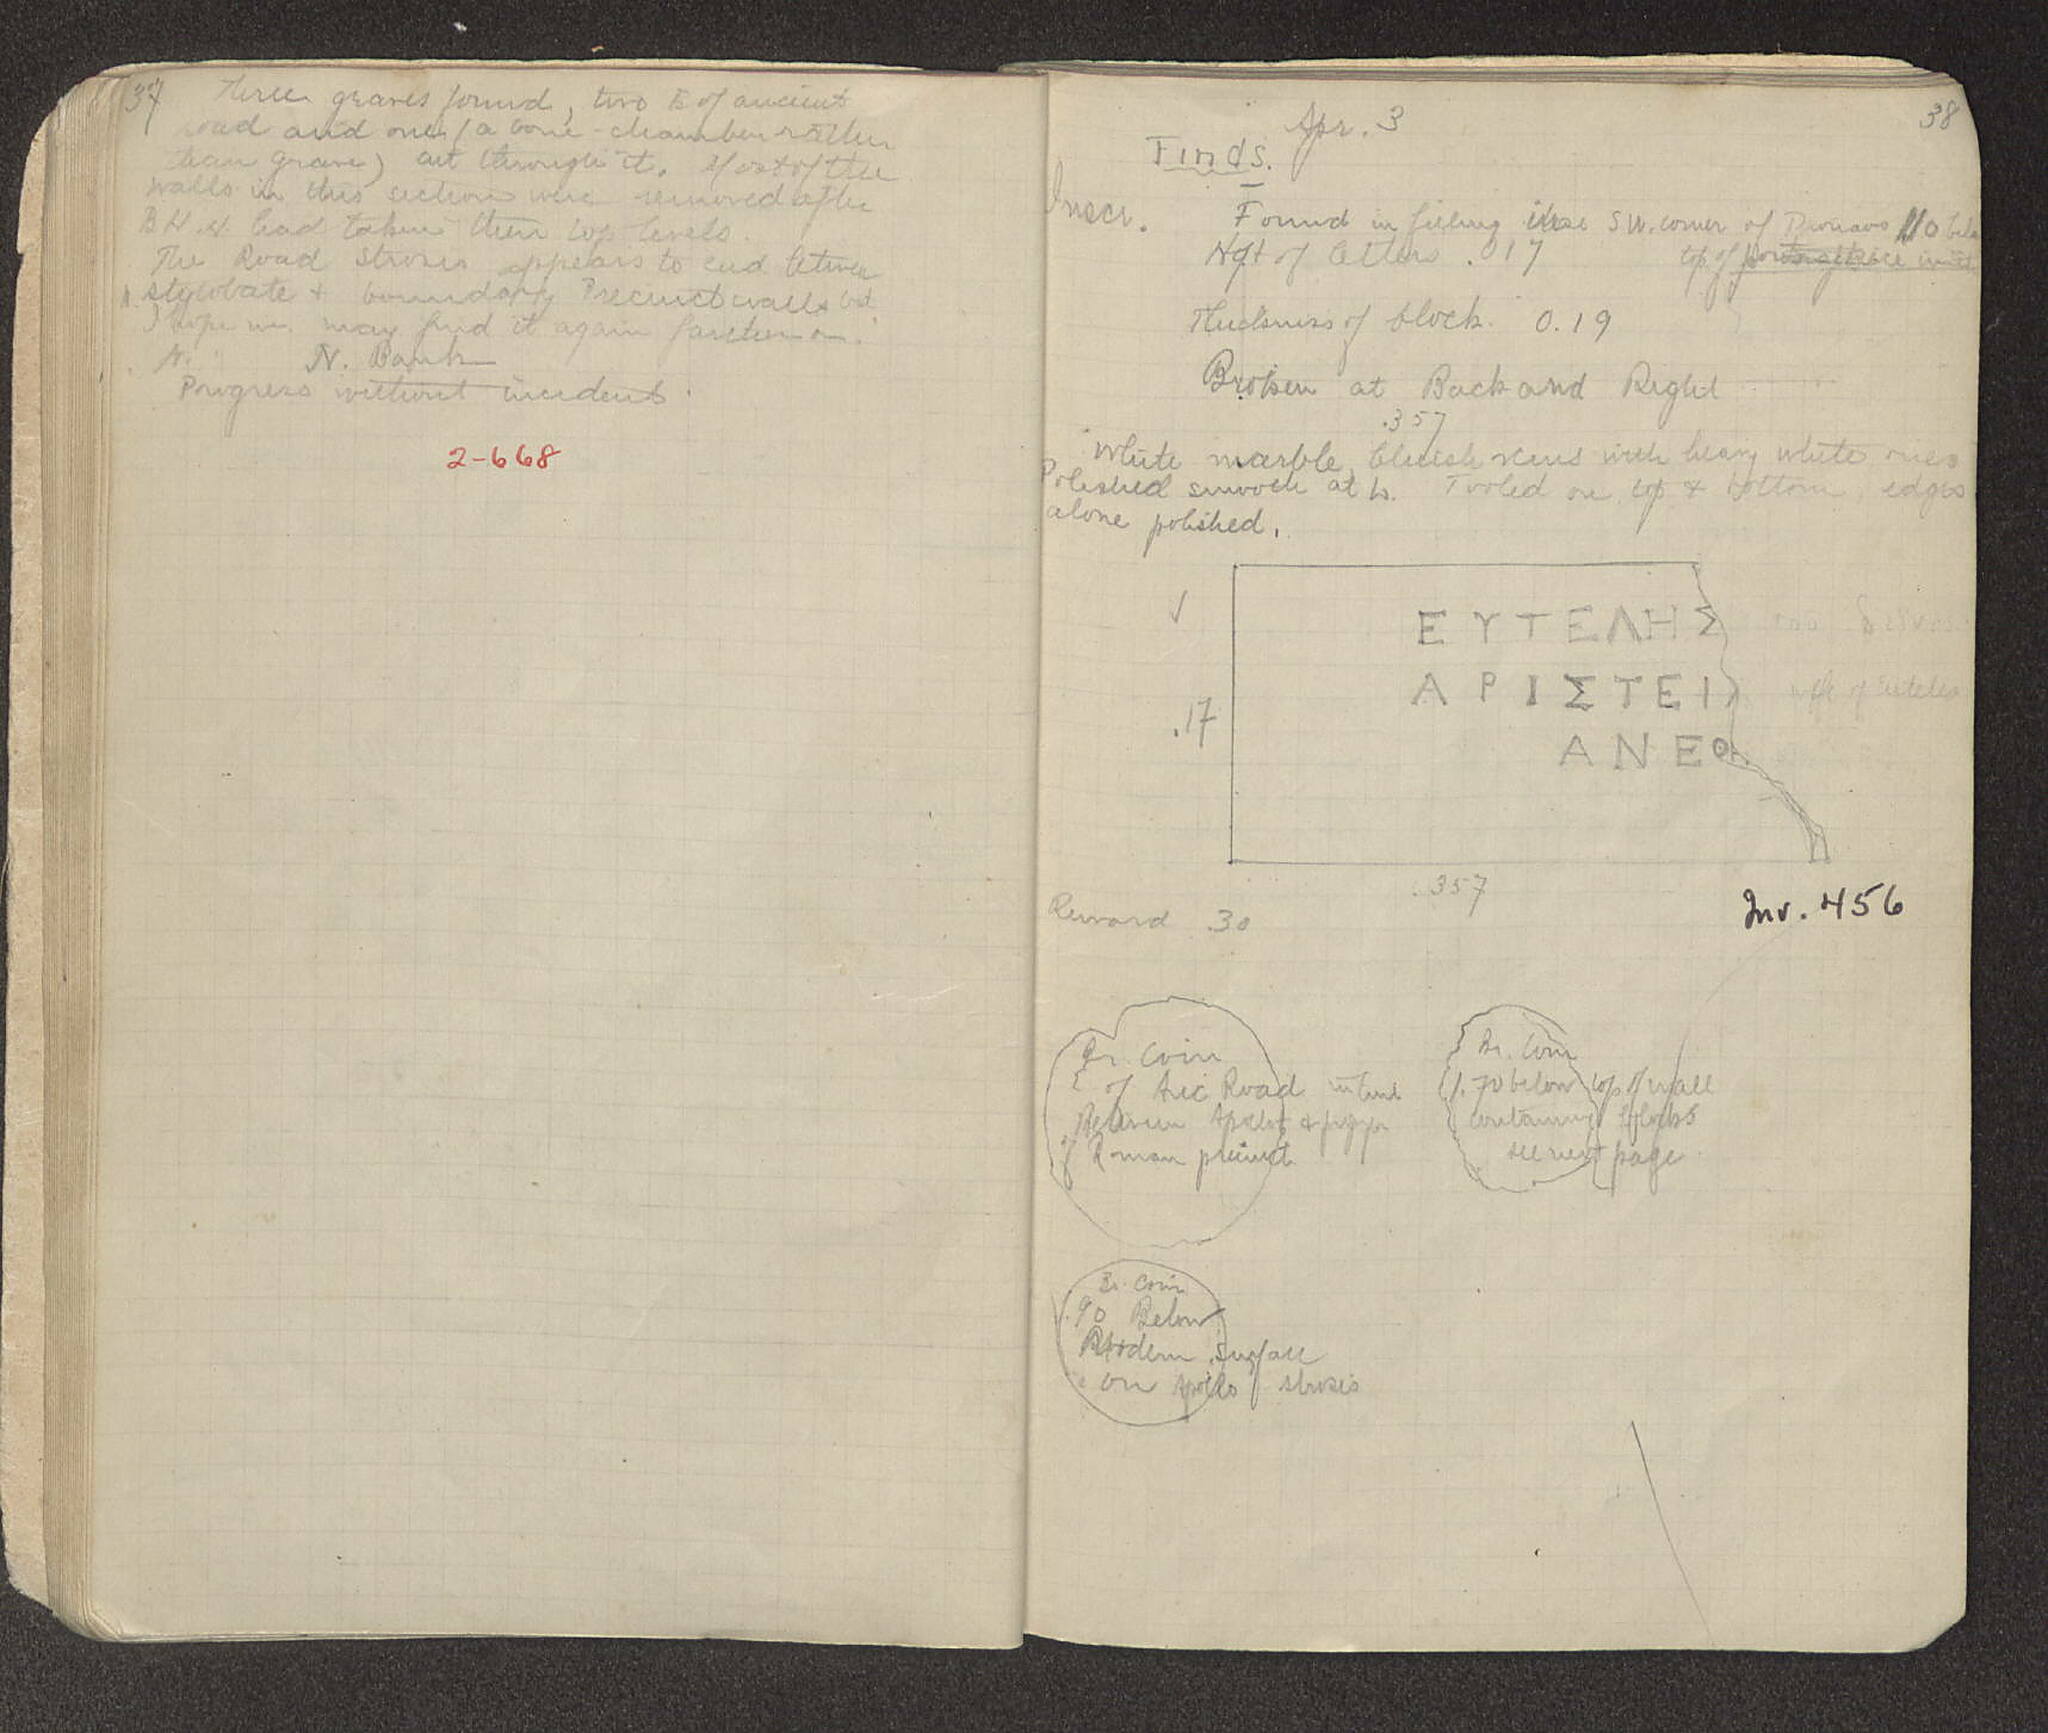 37
Three graves found, two E of ancient
road and one (a bone-chamber rather
than grave) cut through it. Most of the
walls in this section were removed after
B.H.H. had taken their top levels.
The Road Strosis appears to end between
stylobate + boundary Precinct walls but
I hope we may find it again farther on.
N. Bank
Progress without incident.
2-668
38
Apr. 3
Finds.
Inscr. Found in filling SW. corner of Pronaos
Hgt of letters .017 top of
Thickness of block. 0.19
Broken at Back and Right
.357
White marble, bluish veins with heavy white ones
Polished smooth at L. Tooled on top & bottom, edges
alone polished.
ΕΥΤΕΛΗΣ
ΑΡΙΣΤΕΙ
wife of Euteles
.17
ΑΝΕΘ
.357
Reward 30
Inv. 456
Br. Coin
of Anc Road
Between Apollo &
of Roman precinct
Br. Coin
1.70 below top of wall
containing blocks
see next page
Br. Coin
.90 Below
Modern Surface
on Apollo strosis